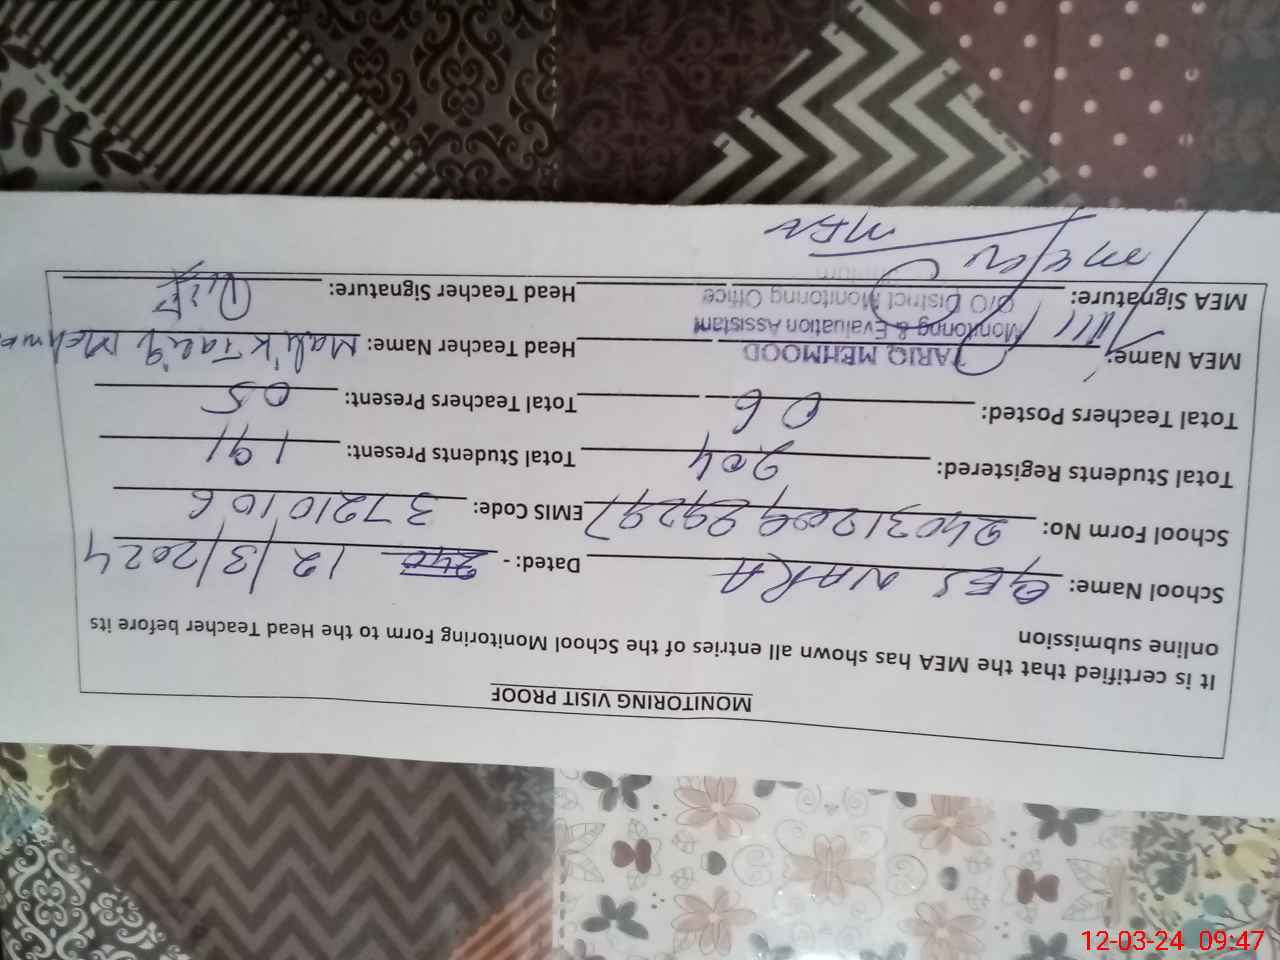 MONITORING VISIT PROOF
It is certified that the MEA has shown all entries of the School Monitoring Form to the Head Teacher before its
online submission
School Name: GES NARA Dated: - 12/3/2024
School Form No: EMIS Code: 37210106
Total Students Registered: 204 Total Students Present: 191
Total Teachers Posted: 06 Total Teachers Present: 05
MEA Name: TARIQ MEHMOOD Head Teacher Name: Malik Tariq Mehmo
Monitoring & Evaluation Assistant
MEA Signature: O/O District Monitoring Office Head Teacher Signature:
MEA
12-03-24 09:47